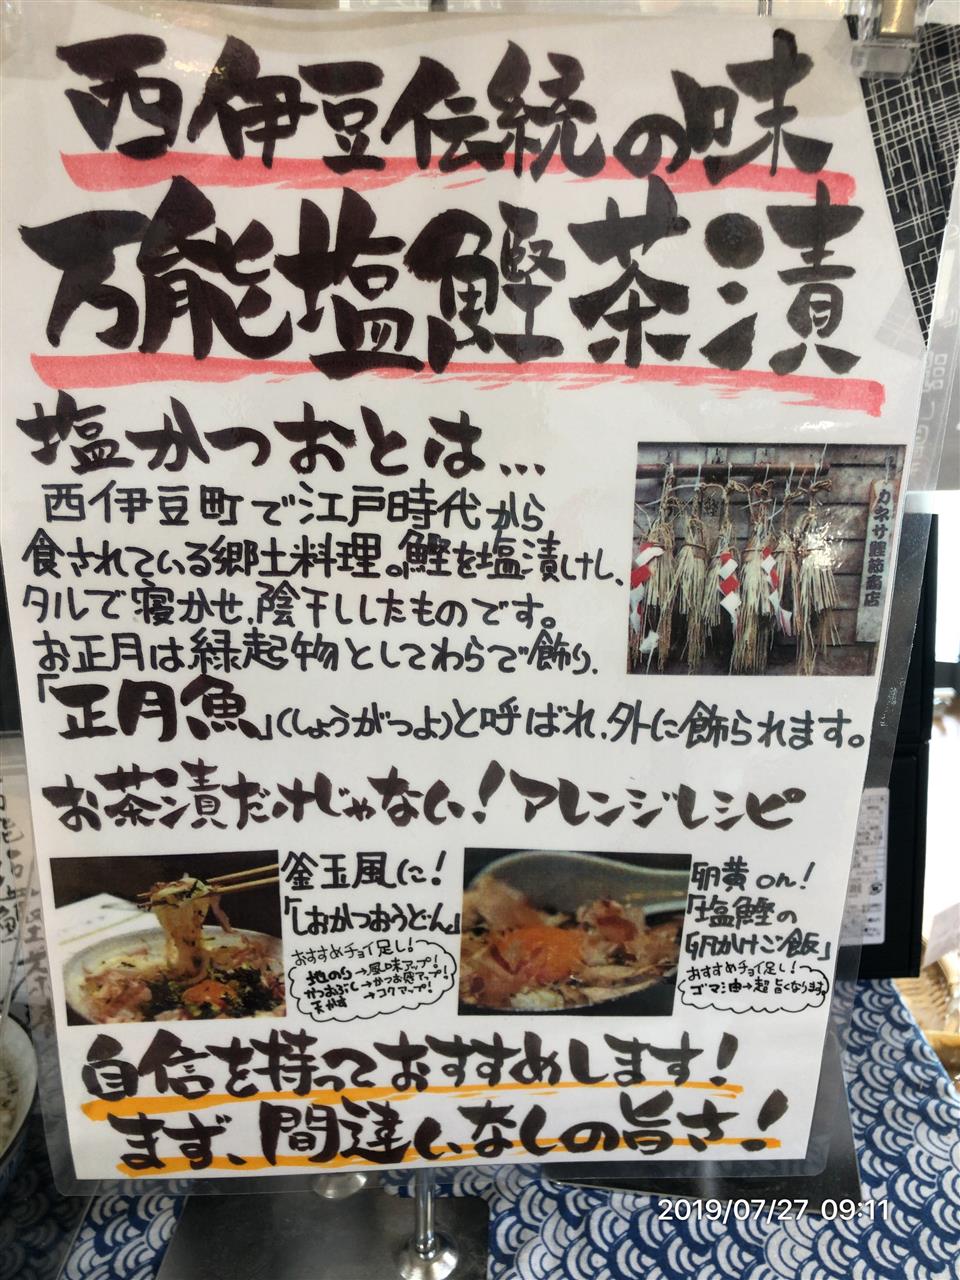 西伊豆伝統の味
万能塩鰹茶漬
塩かつおとは...
西伊豆町で江戸時代から
食されている郷土料理。鰹を塩漬けし、
タルで寝かせ、陰干ししたものです。
お正月は縁起物としてわらで飾り、
「正月魚」(しょうがつよ)と呼ばれ、外に飾られます。
カネサ鰹節商店
お茶漬だけじゃない!アレンジレシピ
釜玉風に!
「しおかつおうどん」
おすすめチョイ足し!
地のり→風味アップ!
かつおぶし→かつお感アップ!
天かす→コクアップ!
卵黄on!
「塩鰹の
卵かけご飯」
おすすめチョイ足し!
ゴマ油→超旨くなります。
自信を持っておすすめします!
まず、間違いなしの旨さ!
2019/07/27 09:11